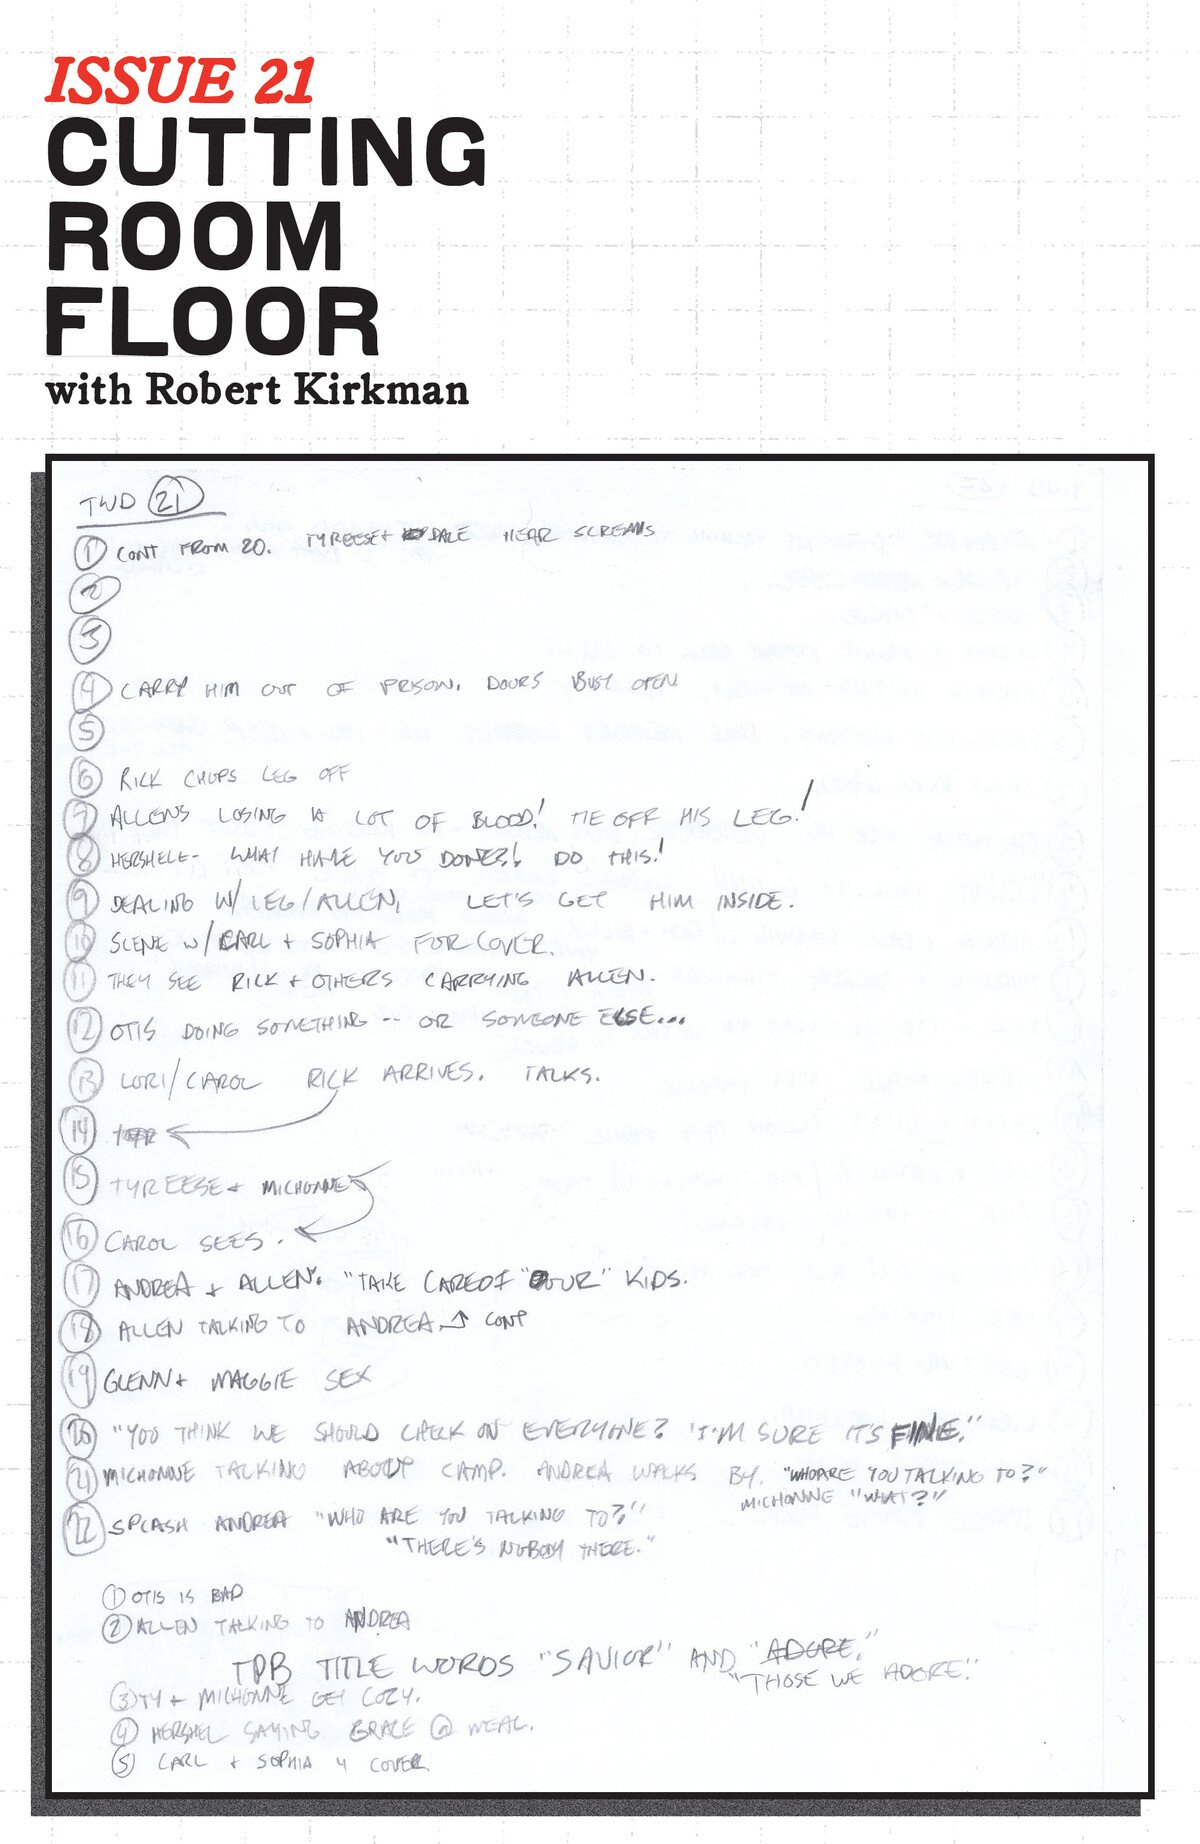 ISSUE 21
CUTTING
ROOM
FLOOR
with Robert Kirkman
TWD 21
1 CONT FROM 20. TYREESE + DALE HEAR SCREAMS
2
3
4 CARRY HIM OUT OF PRISON. DOORS BUST OPEN
5
6 RICK CHOPS LEG OFF
7 ALLENS LOSING A LOT OF BLOOD! TIE OFF HIS LEG!
8 HERSHELL- WHAT HAVE YOU DONE?! DO THIS!
9 DEALING W/ LEG/ALLEN, LET'S GET HIM INSIDE.
10 SCENE W/ CARL + SOPHIA FOR COVER.
11 THEY SEE RICK + OTHERS CARRYING ALLEN.
12 OTIS DOING SOMETHING -- OR SOMEONE ELSE...
13 LORI/CAROL RICK ARRIVES. TALKS.
14
15 TYREESE + MICHONNE
16 CAROL SEES.
17 ANDREA + ALLEN. "TAKE CARE OF "OUR" KIDS.
18 ALLEN TALKING TO ANDREA CONT
19 GLENN + MAGGIE SEX
20 "YOU THINK WE SHOULD CHECK ON EVERYONE? 'I'M SURE IT'S FINE."
21 MICHONNE TALKING ABOUT CAMP. ANDREA WALKS BY. "WHO ARE YOU TALKING TO?"
MICHONNE "WHAT?"
22 SPLASH ANDREA "WHO ARE YOU TALKING TO?"
"THERE'S NOBODY THERE."
1 OTIS IS BAD
2 ALLEN TALKING TO ANDREA
TPB TITLE WORDS "SAVIOR" AND "ADORE."
"THOSE WE ADORE."
3 TY + MICHONNE GET COZY.
4 HERSHEL SAYING GRACE @ MEAL.
5 CARL + SOPHIA 4 COVER.